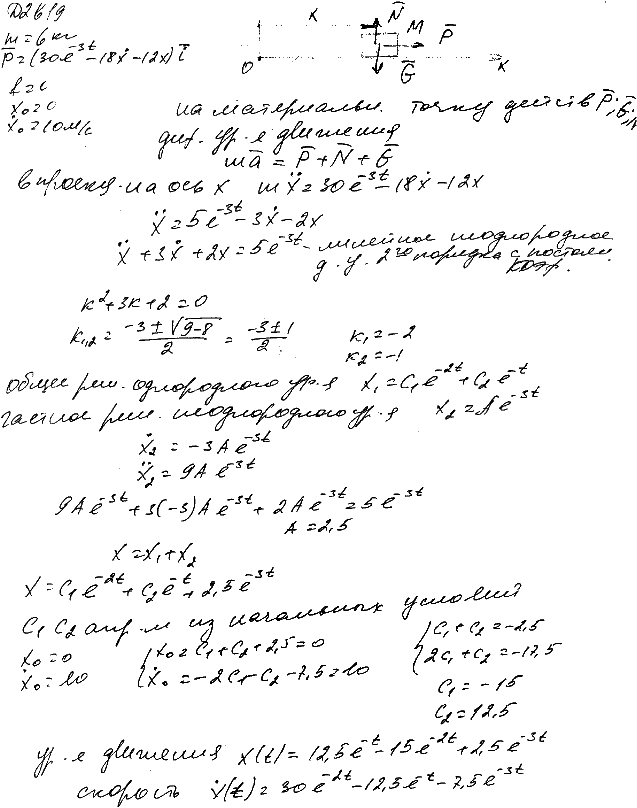 Д2619
m = 6 кг
P̄ = (30e^{-3t} - 18ẋ - 12x) ī
t = 0
x₀ = 0
ẋ₀ = 10 м/с
x N̄ M P̄
O Ḡ x
на материальн. точку действ P̄; Ḡ; N̄
диф. ур-е движения
mā = P̄ + N̄ + Ḡ
в проекц. на ось x mẍ = 30e^{-3t} - 18ẋ - 12x
ẍ = 5e^{-3t} - 3ẋ - 2x
ẍ + 3ẋ + 2x = 5e^{-3t} - линейное неоднородное
д.у. 2го порядка с постоян.
коэф.
к² + 3к + 2 = 0
к₁,₂ = (-3 ± √(9-8))/2 = (-3 ± 1)/2 к₁ = -2
к₂ = -1
общее реш. однородного ур-я x₁ = C₁e^{-2t} + C₂e^{-t}
частное реш. неоднородного ур-я x₂ = Ae^{-3t}
ẋ₂ = -3Ae^{-3t}
ẍ₂ = 9Ae^{-3t}
9Ae^{-3t} + 3(-3)Ae^{-3t} + 2Ae^{-3t} = 5e^{-3t}
A = 2,5
x = x₁ + x₂
x = C₁e^{-2t} + C₂e^{-t} + 2,5e^{-3t}
C₁ C₂ опр-м из начальных условий
x₀ = 0 { x₀ = C₁ + C₂ + 2,5 = 0 { C₁ + C₂ = -2,5
ẋ₀ = 10 { ẋ₀ = -2C₁ - C₂ - 7,5 = 10 { 2C₁ + C₂ = -17,5
C₁ = -15
C₂ = 12,5
ур-е движения x(t) = 12,5e^{-t} - 15e^{-2t} + 2,5e^{-3t}
скорость ẋ(t) = 30e^{-2t} - 12,5e^{-t} - 7,5e^{-3t}